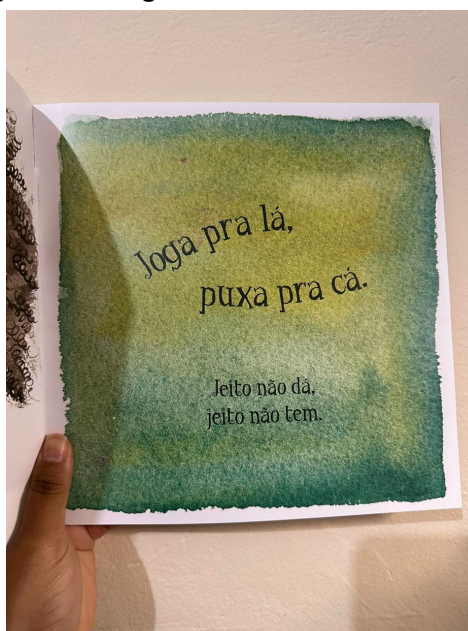 Joga pra lá,
puxa pra cá.
Jeito não dá,
jeito não tem.